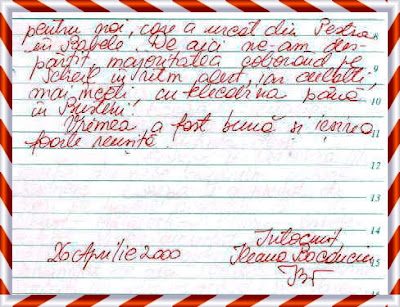 pentru noi, care a urcat din Pestera
în Babele. De aici ne-am des-
părțit, majoritatea coborând pe
Schiel în ritm alert, iar ceilalți,
mai înceti, cu telecabina până
în Busteni.
Vremea a fost bună și iesirea
foarte reusită.
26 Aprilie 2000
Întocmit,
Ileana
8
9
10
11
12
13
14
15
16